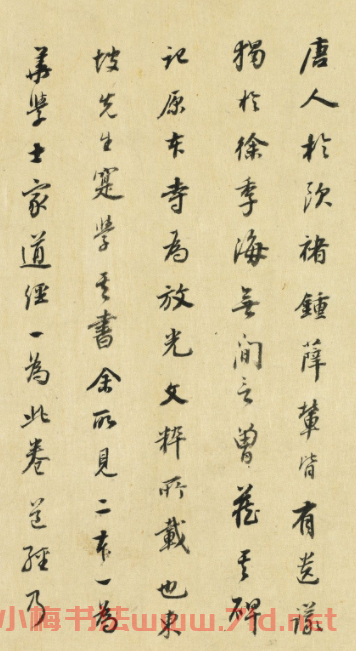 唐人於欧褚鍾薛輩皆有遗議
獨於徐季海無间言曾藏其碑
記原本寺為放光文粹所載也東
坡先生寔學其書余所見二本一為
華學士家道經一為此卷道經乃
小梅书法www.7ld.net